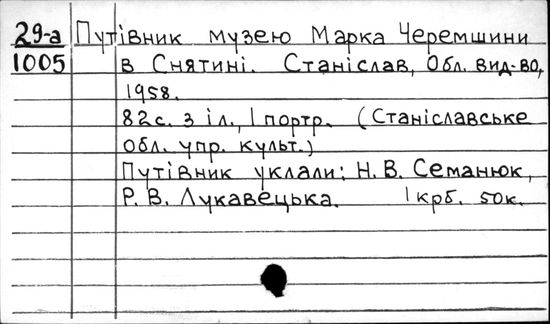 29-а Путівник музею Марка Черемшини
1005 в Снятині. Станіслав, Обл. вид-во,
1958.
82с. з іл., 1 портр. (Станіславське
обл. упр. культ.)
Путівник уклали: Н.В. Семанюк,
Р.В. Лукавецька. 1 крб. 50к.